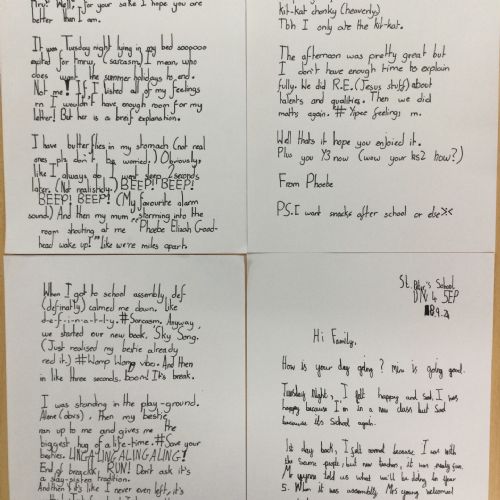 "Well" for your sake I hope you are
better than I am.
It was Tuesday night lying in my bed sooooooo
exited for tmrw, (sarcasm) I mean, who
does want the summer holidays to end.
Not me! If, I listed all of my feelings
rn I wouldn't have enough room for my
letter! But her is a breif explanation.
I have butterflies in my stomach (not real
ones pls don't be worried.) Obviously,
like I always do I went sleep 2 seconds
later. (Not realisticly.) BEEP! BEEP!
BEEP! BEEP! (My favourite alarm
sound) And then my mum storming into the
room shouting at me "Phoebe Elizah Good-
head wake up!" Like we're miles apart.
kit-kat chonky (heavenly)
Tbh I only ate the kit-kat.
The afternoon was pretty great but
I don't have enough time to explain
fully. We did R.E. (Jesus stuff) about
talents and qualities. Then we did
maths again. # Yipee feelings rn.
Well thats it hope you enjoied it.
Plus you Y3 now (wow your ks2 now?)
From Phoebe
P.S. I want snacks after school or else
When I got to school assembly def
(definatly) calmed me down. Like
d-e-f-i-n-a-t-l-y. #Sarcasm. Anyway,
we started our new book, 'Sky Song.'
(Just realised my bestie already
red it.) #Womp Womp vibe. And then
in like three seconds. Boom! It's break.
I was standing in the play-ground.
Alone (obvs). Then my bestie
ran up to me and gives me the
biggest hug of a life-time. # Save your
besties. LINGALINGALINGALING!
End of break. RUN! Don't ask it's
a slay-sister tradition.
And then it's like I never even left, it's
St. School
SEP
Hi Family,
How is your day going? Mine is going good.
Tuesday Night, I felt happy and sad, I was
happy because I'm in a new class but sad
because it's School again.
1st day back, I felt normal because I was with
the same people, but new teacher, it was really fun.
Mr told us what we'll be doing in Year
5. When it was assembly Mrs young welcomed